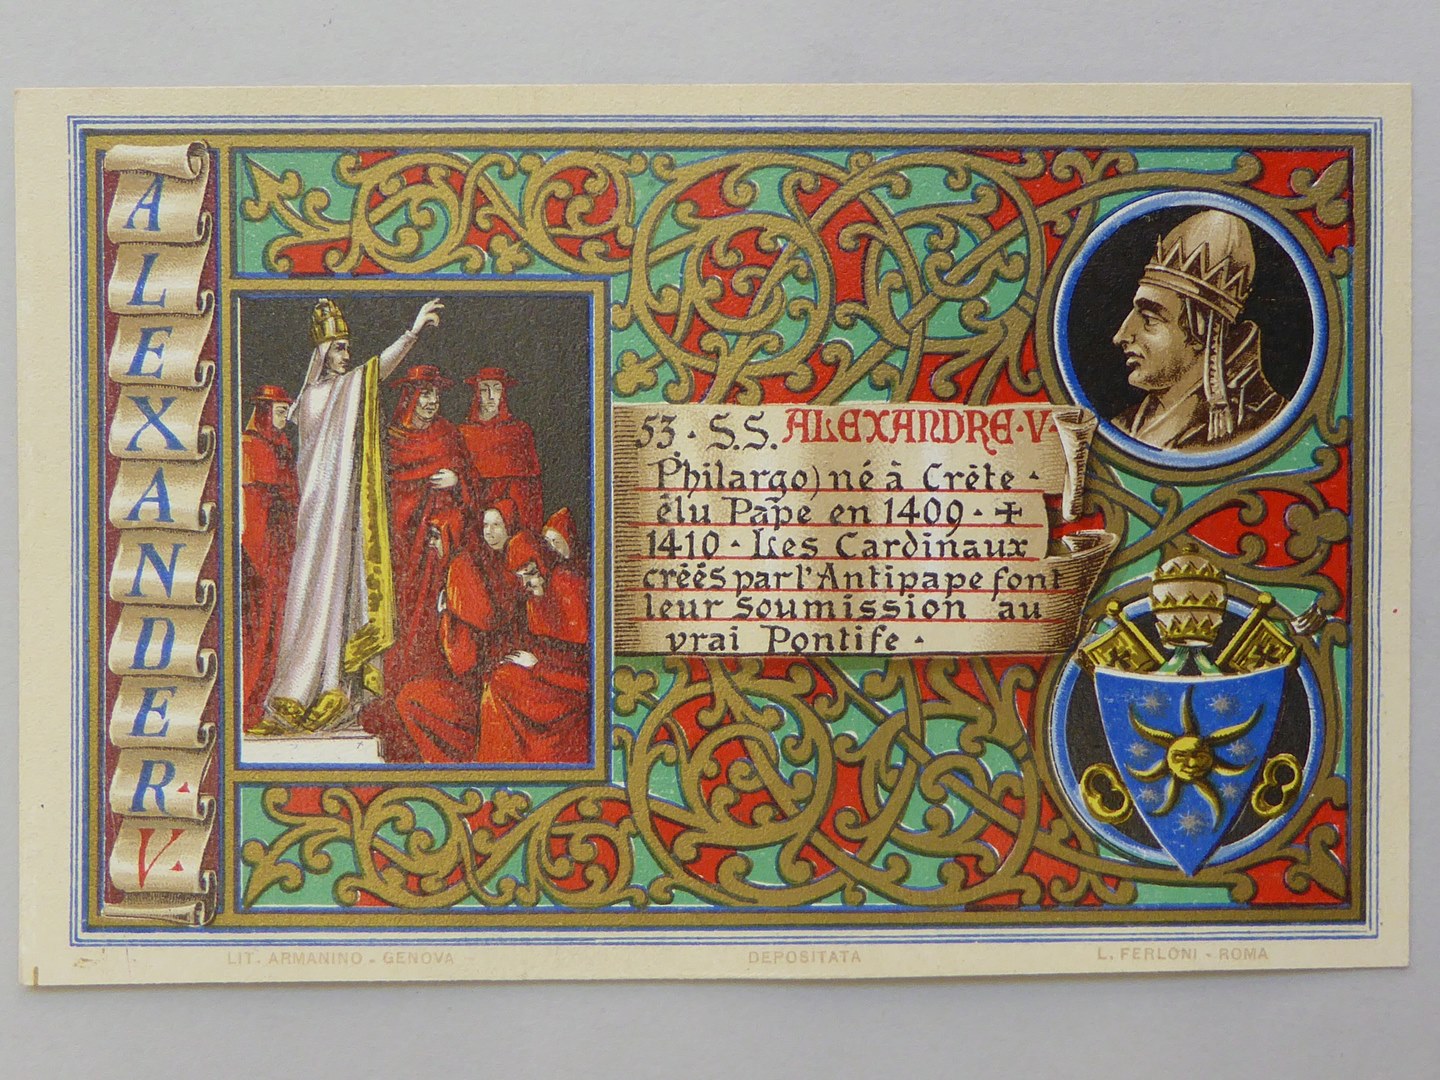 ALEXANDER·V·
53 · S.S. ALEXANDRE·V·
Philargo) né à Crète ·
élu Pape en 1409 · +
1410 · Les Cardinaux
créés par l'Antipape font
leur Soumission au
vrai Pontife ·
LIT. ARMANINO - GENOVA
DEPOSITATA
L. FERLONI - ROMA